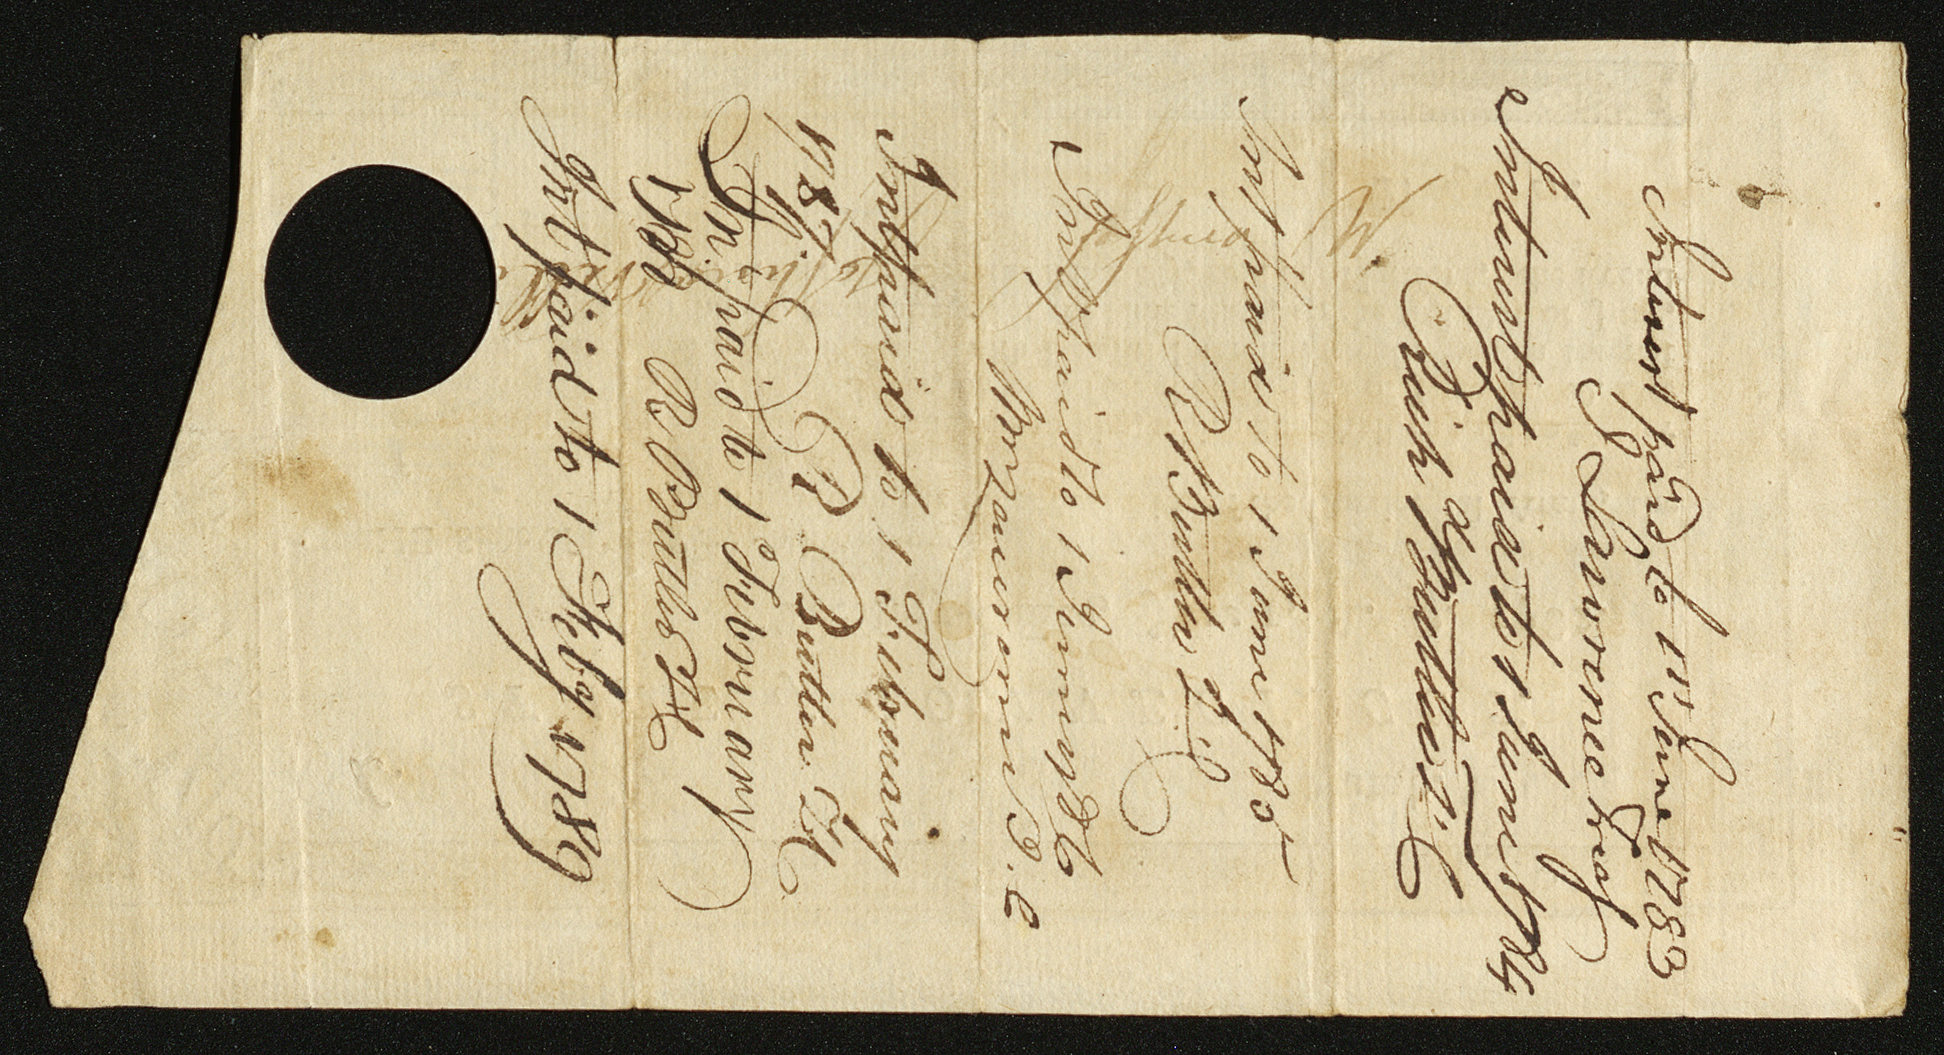 Interest paid to 1st June 1783
Lawrence Treasr
Interest paid to 1 June 1784
Rich d Butler
Int paid to 1 June 1785
R Butler
Int paid to 1 June 1786
Int paid to 1 February
1787
R Butler
Int paid to 1 February
1788 R Butler
Int paid to 1 Feby 1789